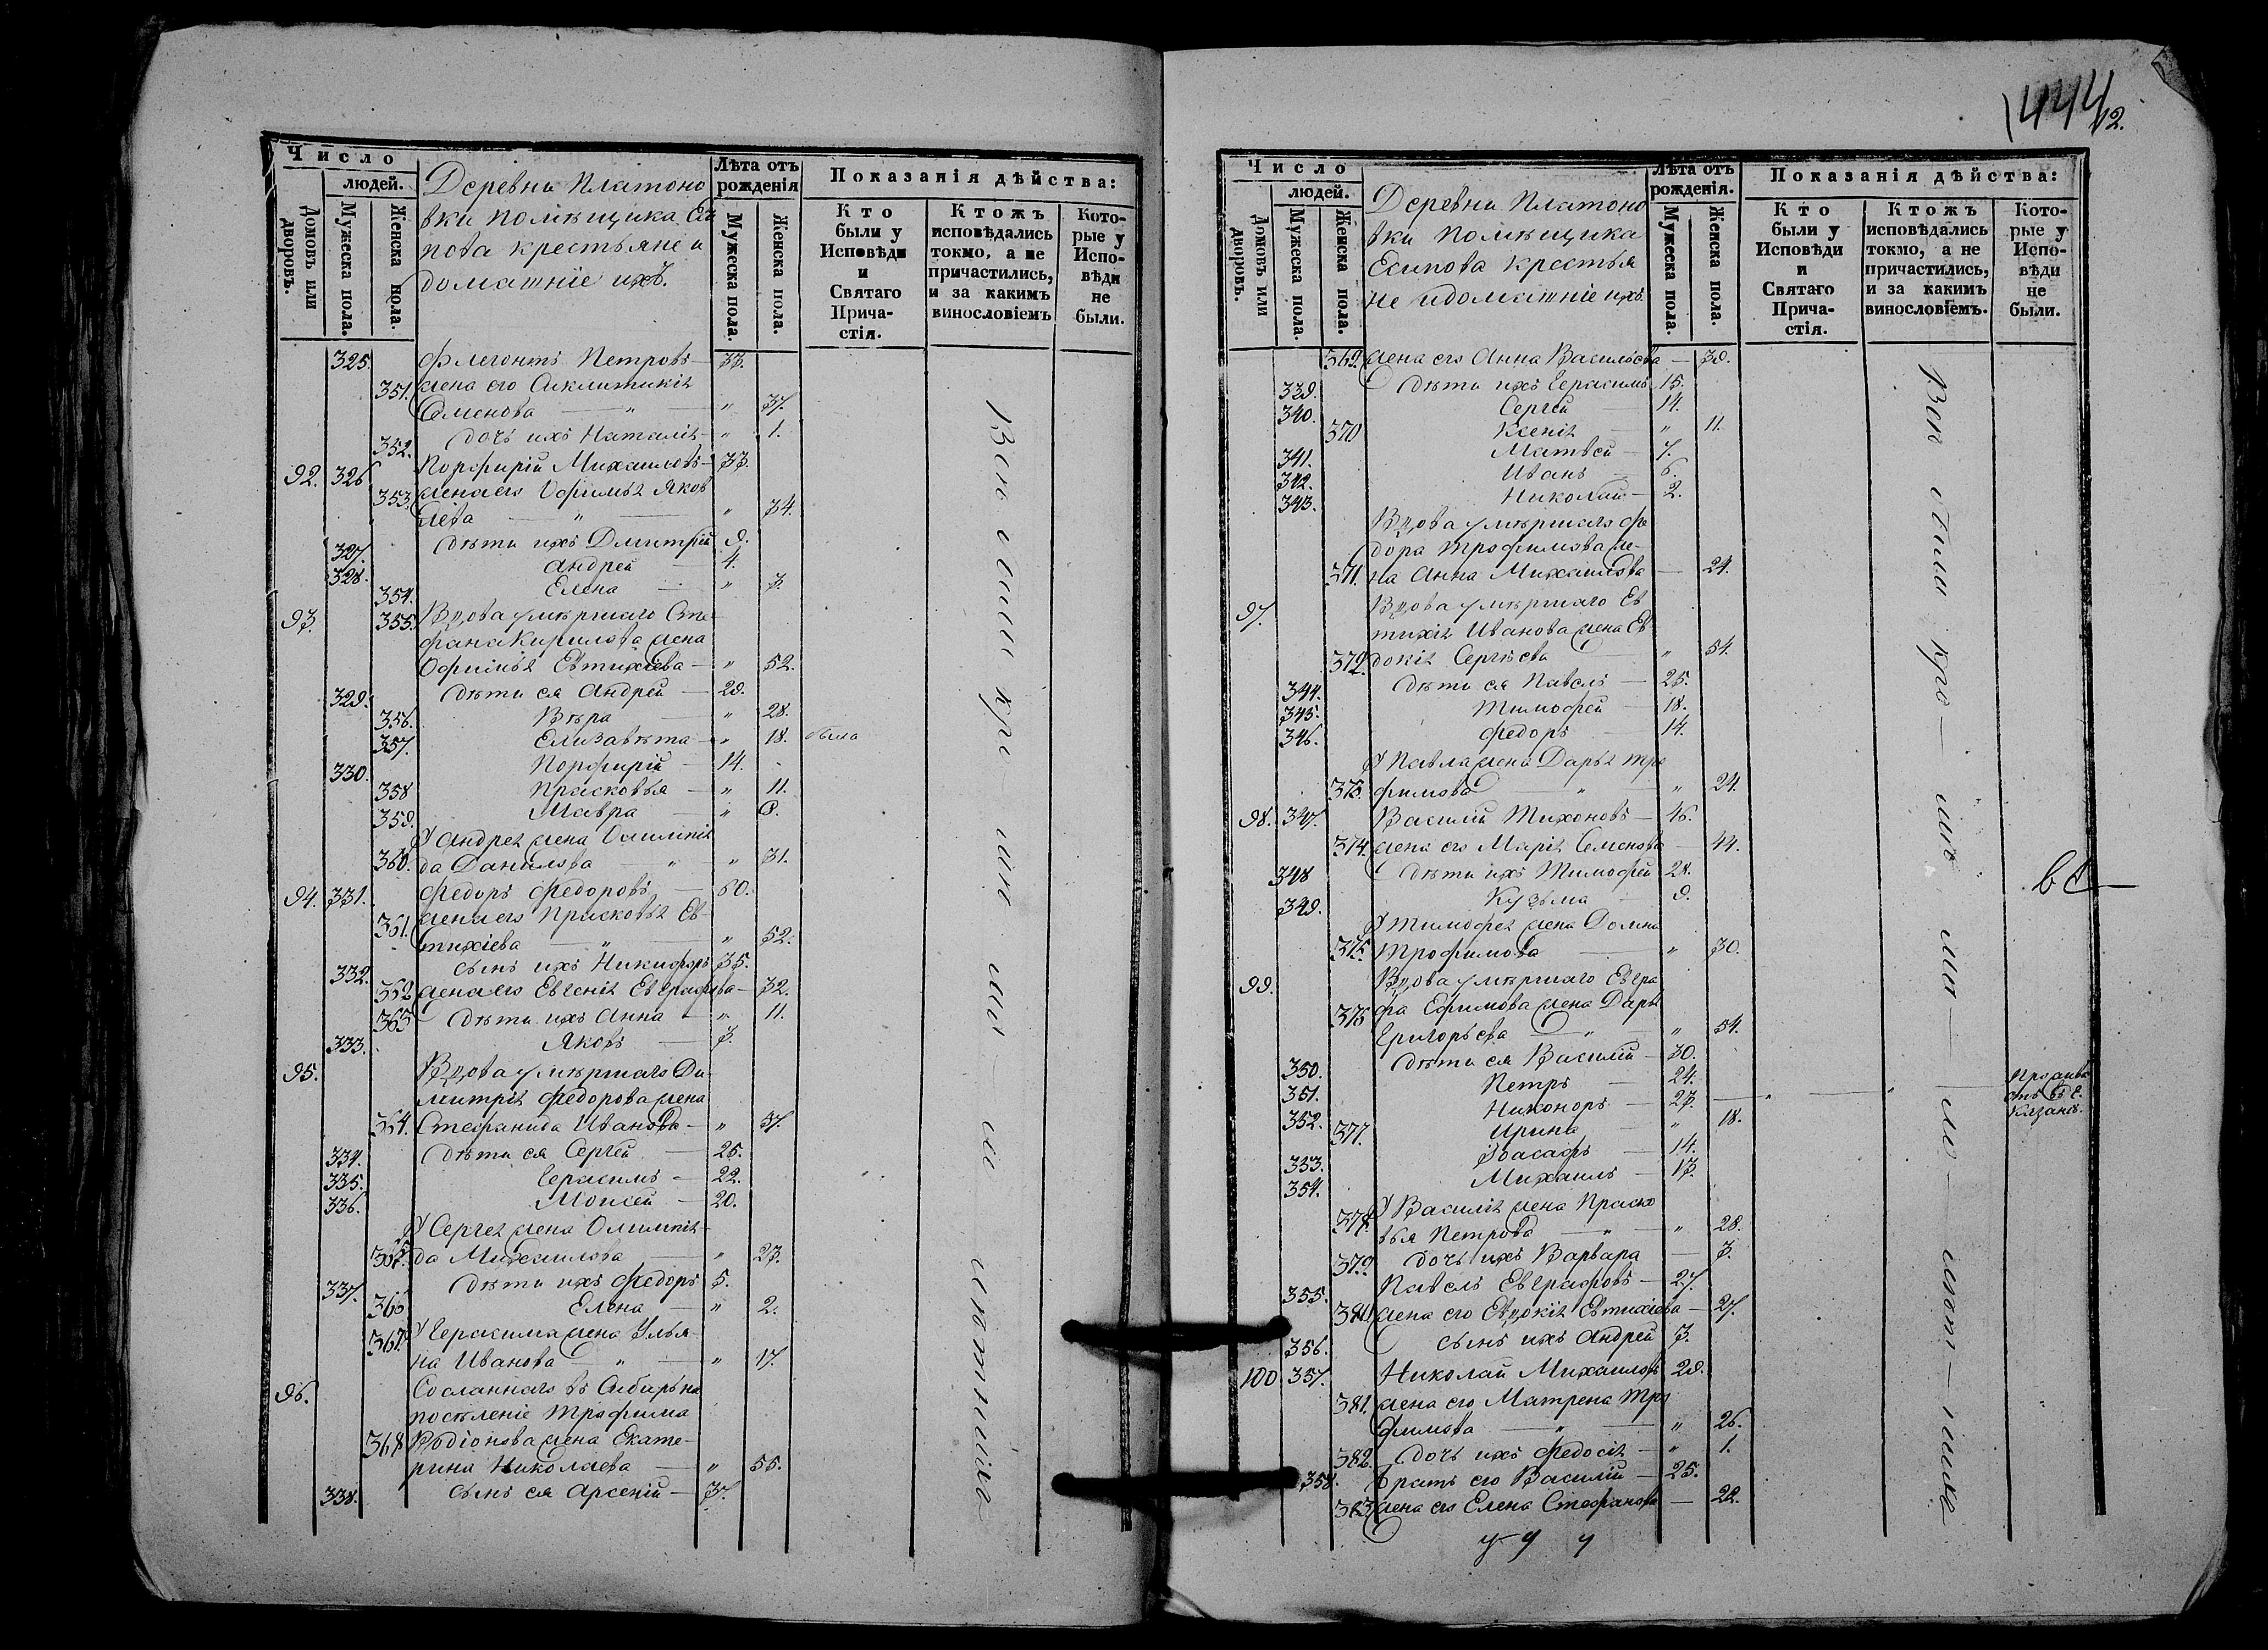 Число
людей.
Домовъ или дворовъ.
Мужеска пола.
Женска пола.
Деревни Платоно
вки помѣщика Еси
пова крестьяне и
домашніе ихъ.
Лѣта отъ рожденія
Мужеска пола.
Женска пола.
Показанія дѣйства:
Кто были у Исповѣди и Святаго Причастія.
Ктожъ исповѣдались токмо, а не причастились, и за какимъ винословіемъ
Которые у Исповѣди не были.
325. Флегонтъ Петровъ — 33.
351. жена его Сиклитикія
Семенова — " — " 37.
352. дочь ихъ Наталія — " 1.
92. 326 Порфирій Михаиловъ — 33.
353. жена его Офимья Яков
лева — " — " 34.
327. дѣти ихъ Дмитрій 9.
328. Андрей — 4.
354. Елена — " 3.
93. 355. Вдова умѣршаго Сте
фана Кирилова жена
Офимья Евтихіева — " 52.
329. дѣти ея Андрей — 29.
356. Вѣра — " 28.
357. Елизавѣта — " 18. была
330. Порфирій — 14.
358 Прасковья — " 11.
359. Мавра — " 8.
У Андрея жена Олимпія
360. да Данилова — " — " 31.
94. 331. Федоръ Федоровъ — 60.
361. жена его Прасковья Ев-
тихіева — " — " 52.
332. сынъ ихъ Никифоръ 35.
362 жена его Евгенія Евграфова — 32.
363 дѣти ихъ Анна — " 11.
333. Яковъ — 3.
95. Вдова умѣршаго Ди-
митрія Федорова жена
364. Стефанида Иванова — " 57.
334. дѣти ея Сергей — 25.
335. Герасимъ — 22.
336. Моисей — 20.
У Сергея жена Олимпія-
365. да Михаилова — " 23.
337. дѣти ихъ Федоръ 5.
366 Елена — " 2.
367. У Герасима жена Улья-
на Иванова — " — " 17.
96. Сосланнаго въ Сибирь на
поселеніе Трофима
368 Родіонова жена Екате-
рина Николаева — " 55.
338. сынъ ея Арсеній — 37.
444
12.
Число
людей.
Домовъ или дворовъ.
Мужеска пола.
Женска пола.
Деревни Платоно
вки помѣщика
Есипова крестья
не и домашніе ихъ.
Лѣта отъ рожденія.
Мужеска пола.
Женска пола.
Показанія дѣйства:
Кто были у Исповѣди и Святаго Причастія.
Ктожъ исповѣдались токмо, а не причастились, и за какимъ винословіемъ.
Которые у Исповѣди не были.
369. жена его Анна Васильева — 39.
339. дѣти ихъ Герасимъ 15.
340. Сергей — 14.
370 Ксенія — " 11.
341. Матвей — 7.
342. Иванъ — 6.
343. Николай — 2.
Вдова умѣршаго Фе
дора Трофимова же-
371. на Анна Михаилова — 24.
97. Вдова умѣршаго Ев
тихія Иванова жена Ев
372. докія Сергѣева " 54.
344. дѣти ея Павелъ — 25.
345. Тимофей — 18.
346. Федоръ — 14.
У Павла жена Дарья Тро
373. фимова — " — " 24.
98. 347. Василій Тихоновъ — 46.
374. жена его Марія Семенова — 44.
348 дѣти ихъ Тимофей 28.
349. Кузьма — 9.
У Тимофея жена Домна
375. Трофимова — " 30.
99. Вдова умѣршаго Евгра
376 фа Ефимова жена Дарья
Григорьева — " — " 54.
350. дѣти ея Василій — 30.
351. Петръ — 24.
352. Никоноръ — 23. — " — "
377. Ирина — " 18.
353. Іоасафъ — 14.
354. Михаилъ — 13.
378. У Василія жена Праско
вья Петрова — " — " 28.
379. дочь ихъ Варвара — 3.
355. Павелъ Евграфовъ — 27.
380. жена его Евдокія Евтихіева — 27.
356. сынъ ихъ Андрей 3.
100 357. Николай Михаиловъ 29.
381. жена его Матрена Тро
фимова — " — " 26.
382. дочь ихъ Федосія — " 1.
358. братъ его Василій — 25.
383. жена его Елена Стефанова — 22.